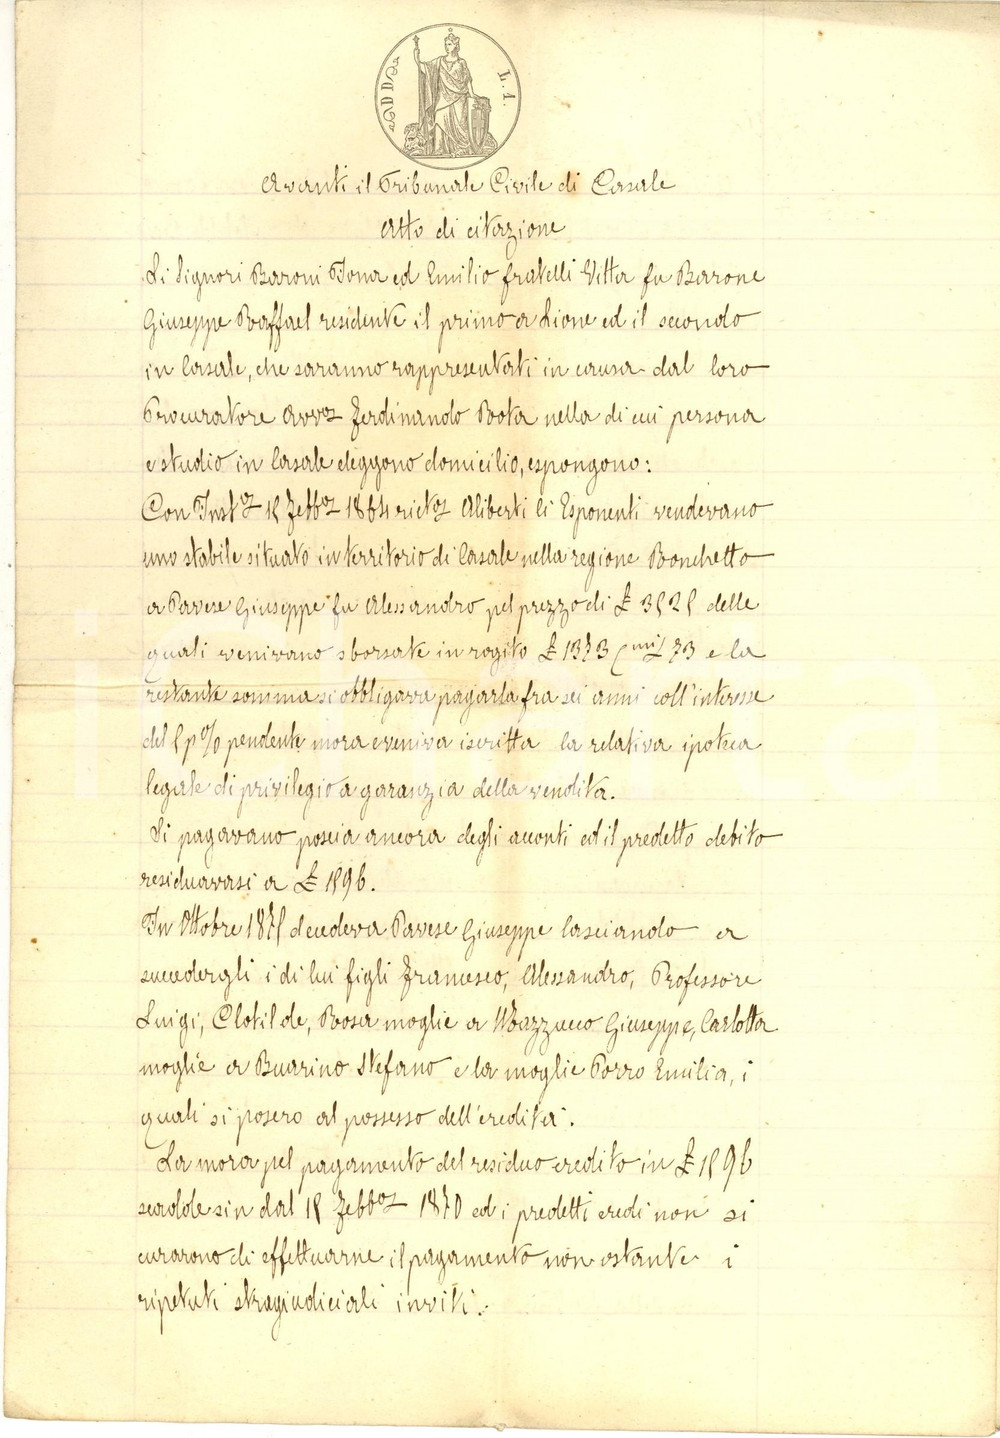 L. 1.
Avanti il Tribunale Civile di Casale
Atto di citazione
Li Signori Baroni Jona ed Emilio fratelli Vitta fu Barone
Giuseppe Raffael residente il primo a Lione ed il secondo
in Casale, che saranno rappresentati in causa dal loro
Procuratore Avvo Ferdinando Botta nella di cui persona
e studio in Casale eleggono domicilio, espongono:
Con Instro 15 Febbro 1864 ricto Aliberti li Esponenti vendevano
uno stabile situato in territorio di Casale nella regione Ronchetto
a Pavese Giuseppe fu Alessandro pel prezzo di £ 3525 delle
quali venivano sborsate in rogito £ 1373 Cmi 73 e la
restante somma si obbligava pagarla fra sei anni coll'interesse
del 5 p% pendente mora e veniva iscritta la relativa ipoteca
legale di privilegio a garanzia della vendita.
Si pagavano poscia ancora degli acconti ed il predetto debito
residuavasi a £ 1596.
In Ottobre 1875 decedeva Pavese Giuseppe lasciando a
succedergli i di lui figli Francesco, Alessandro, Professore
Luigi, Clotilde, Rosa moglie a Mazzucco Giuseppe, Carlotta
moglie a Buarino Stefano e la moglie Porro Emilia, i
quali si posero al possesso dell'eredità.
La mora pel pagamento del residuo credito in £ 1596
scadde sin dal 15 Febbro 1870 ed i predetti eredi non si
curarono di effettuarne il pagamento non ostante i
ripetuti stragiudiciali inviti.